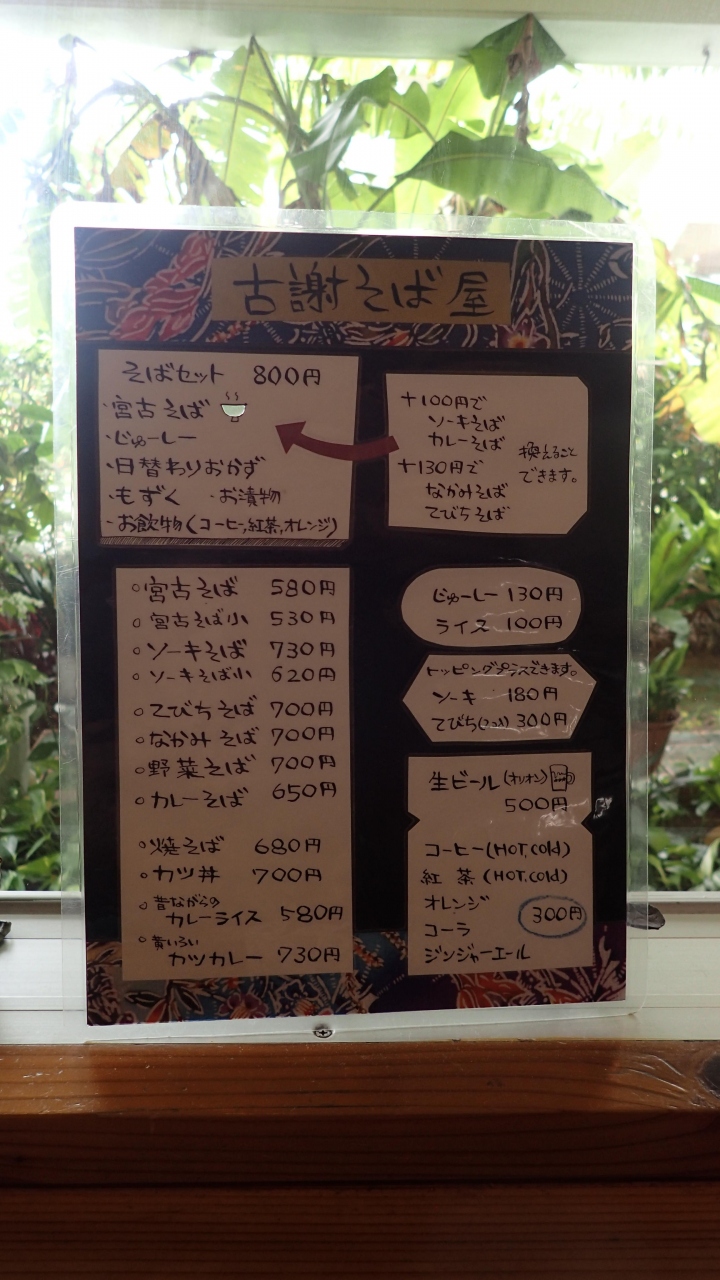 古謝そば屋
そばセット 800円
・宮古そば
・じゅーしー
・日替わりおかず
・もずく ・お漬物
・お飲物(コーヒー,紅茶,オレンジ)
+100円で
ソーキそば
カレーそば
+130円で
なかみそば
てびちそば
換えること
できます。
○宮古そば 580円
○宮古そば小 530円
○ソーキそば 730円
○ソーキそば小 620円
○てびちそば 700円
○なかみそば 700円
○野菜そば 700円
○カレーそば 650円
○焼そば 680円
○カツ丼 700円
○昔ながらの
カレーライス 580円
○黄いろい
カツカレー 730円
じゅーしー 130円
ライス 100円
トッピングプラスできます。
ソーキ 180円
てびち(2コ) 300円
生ビール(オリオン)
500円
コーヒー(HOT,Cold)
紅茶(HOT,Cold)
オレンジ
コーラ
ジンジャーエール
300円